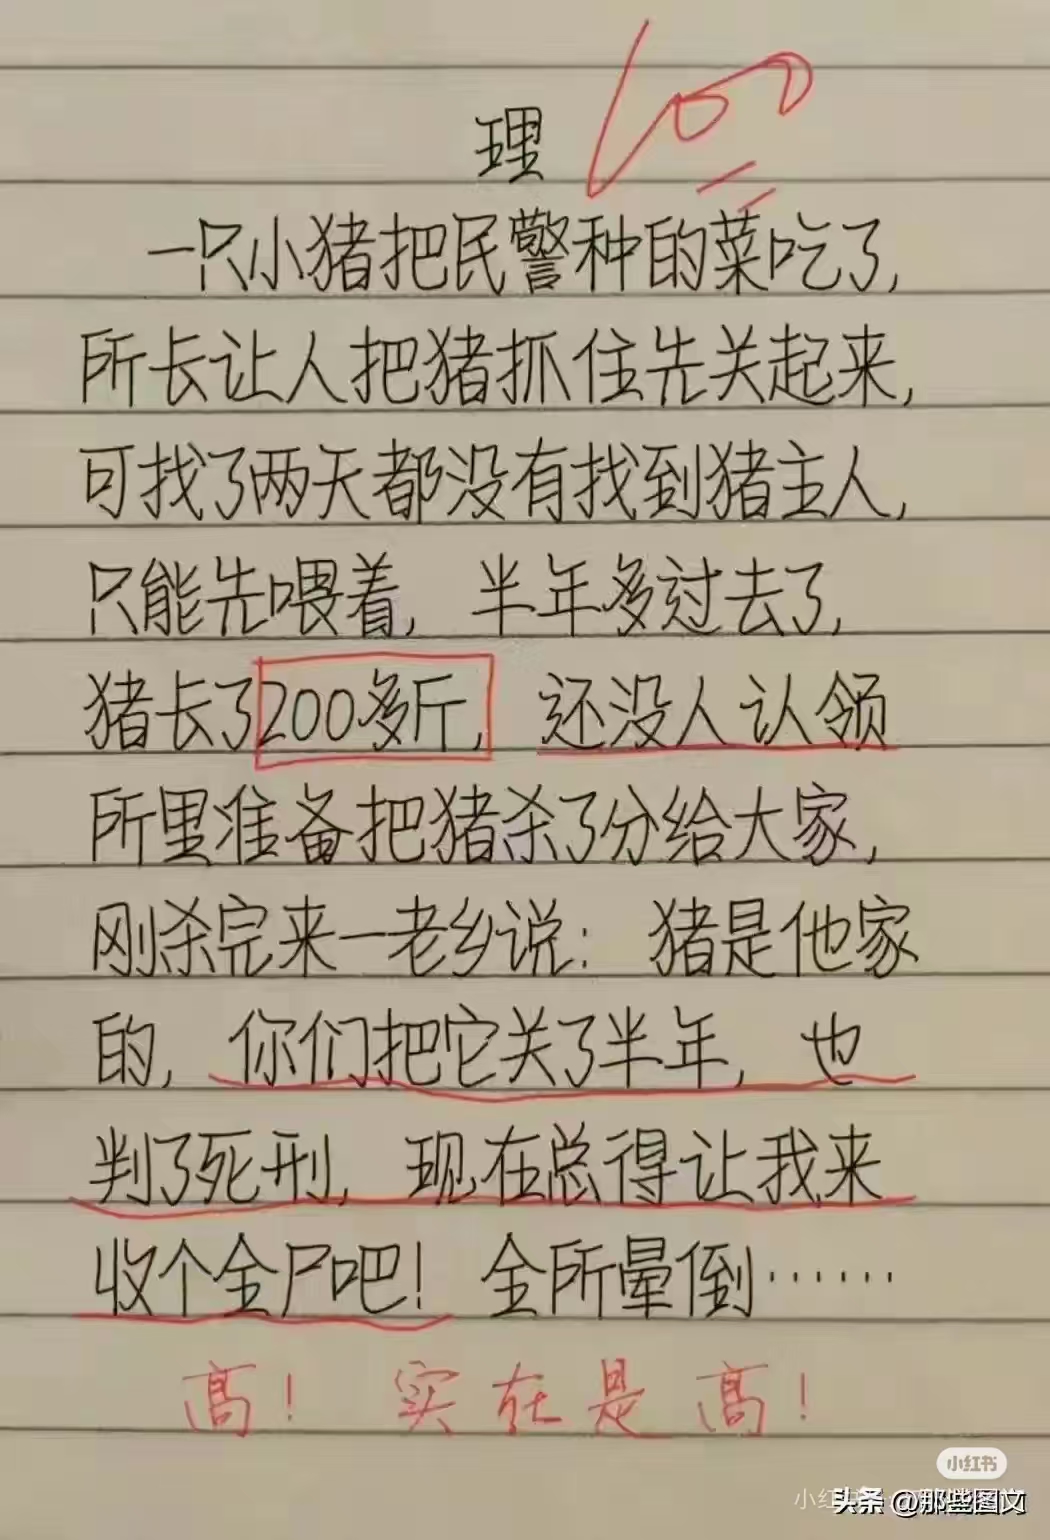 理 100
一只小猪把民警种的菜吃了,
所长让人把猪抓住先关起来,
可找了两天都没有找到猪主人,
只能先喂着, 半年多过去了,
猪长了200多斤, 还没人认领
所里准备把猪杀了分给大家,
刚杀完来一老乡说: 猪是他家
的, 你们把它关了半年, 也
判了死刑, 现在总得让我来
收个全尸吧! 全所晕倒……
高! 实在是高!
小红书
头条 @那些图文